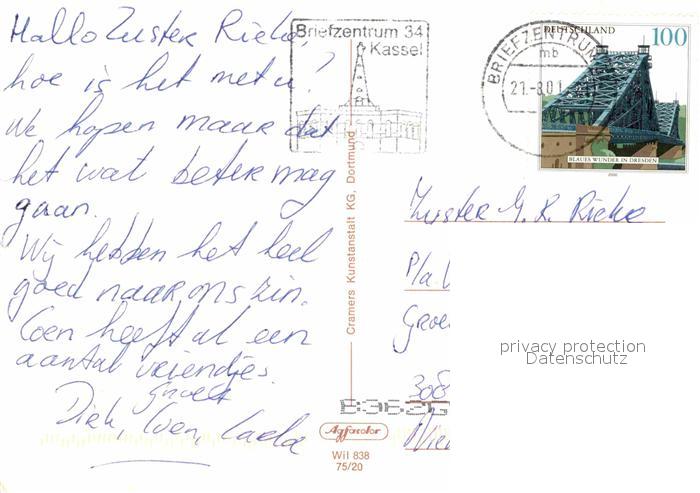 Hallo Zuster Rieka,
hoe is het met u?
We hopen maar dat
het wat beter mag
gaan.
Wij hebben het heel
goed naar ons zin.
Coen heeft al een
aantal vriendjes.
Groet
Dirk, Coen,
Briefzentrum 34
Kassel
BRIEFZENTRUM
mb
21.-8.01
DEUTSCHLAND
100
BLAUES WUNDER IN DRESDEN
2000
Cramers Kunstanstalt KG, Dortmund
Zuster G. R. Rieka
P/a
Groe
308
privacy protection
Datenschutz
Agfacolor
Wil 838
75/20